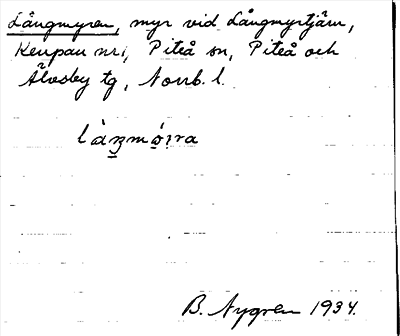 Långmyren, myr vid Långmyrtjärn,
Keupau nr 1, Piteå sn, Piteå och
Älvsby tg, Norrb. l.
B. Nygren 1934.